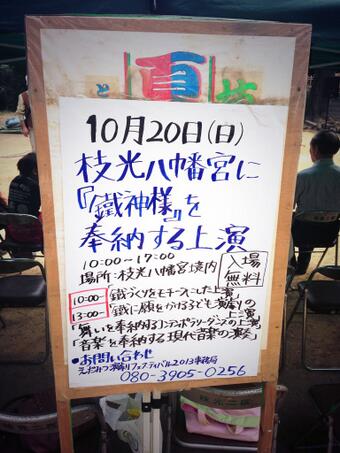 夏
10月20日(日)
枝光八幡宮に
『鐵神様』を
奉納する上演
10:00～17:00
入場無料
場所:枝光八幡宮境内
10:00～
「鐵づくりをモチーフにした上演」
13:00～
「鐵に願をかける子ども演劇の上演」
「舞いを奉納するコンテンポラリーダンスの上演」
「音楽を奉納する現代音楽の演奏」
●お問い合わせ
えだみつ演劇フェスティバル2013事務局
080-3905-0256